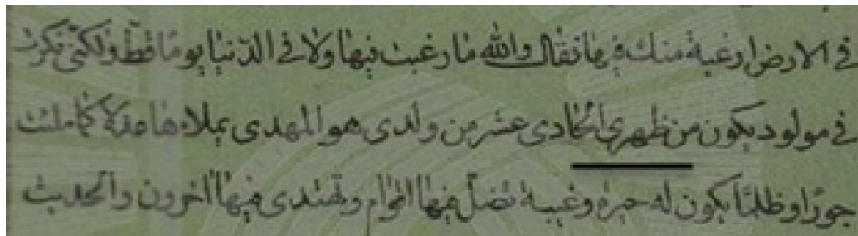 في الارض ارغبة منك فيها فقال والله ما رغبت فيها ولا في الدنيا يوما قط ولكني فكرت
في مولود يكون من ظهري الحادي عشر من ولدي هو المهدي يملاءها عدلا كما ملئت
جورا وظلما يكون له حيرة وغيبة تضل فيها اقوام وتهتدي فيها اخرون والحديث